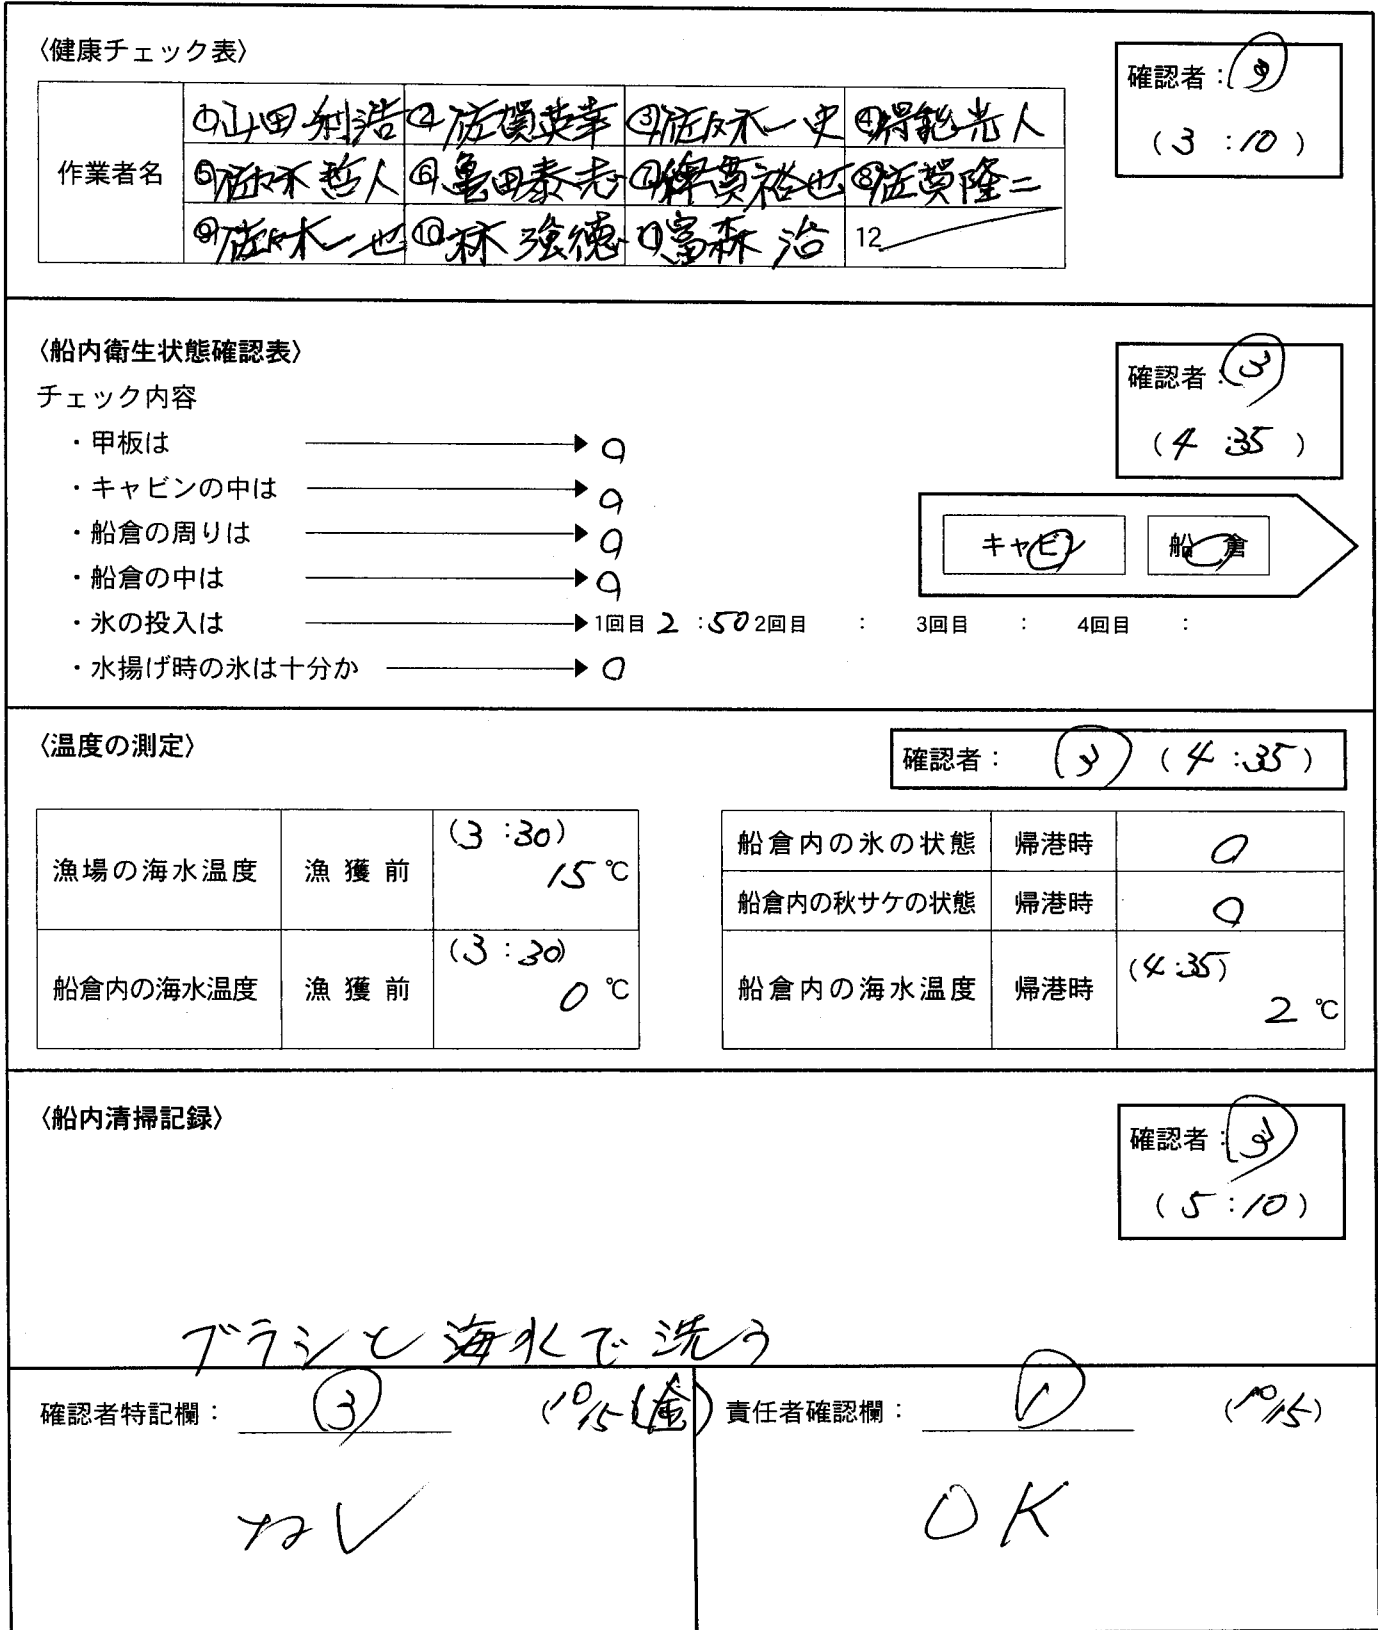 〈健康チェック表〉
確認者：③
(3：10)
作業者名
①山田利浩 ②佐賀英幸 ③佐々木一史 ④得能光人
⑤佐々木哲人 ⑥亀田泰志 ⑦ ⑧佐賀隆二
⑨佐々木一也 ⑩林強徳 11富森治 12
〈船内衛生状態確認表〉
確認者：③
(4：35)
チェック内容
・甲板は ○
・キャビンの中は ○
・船倉の周りは ○
・船倉の中は ○
キャビン 船倉
・氷の投入は 1回目 2：50 2回目 ： 3回目 ： 4回目 ：
・水揚げ時の氷は十分か ○
〈温度の測定〉
確認者： ③ (4：35)
漁場の海水温度 漁獲前 (3：30) 15℃
船倉内の海水温度 漁獲前 (3：30) 0℃
船倉内の氷の状態 帰港時 ○
船倉内の秋サケの状態 帰港時 ○
船倉内の海水温度 帰港時 (4：35) 2℃
〈船内清掃記録〉
確認者：③
(5：10)
ブラシと海水で洗う
確認者特記欄： ③ (10/15(金))
なし
責任者確認欄： ① (10/15)
OK